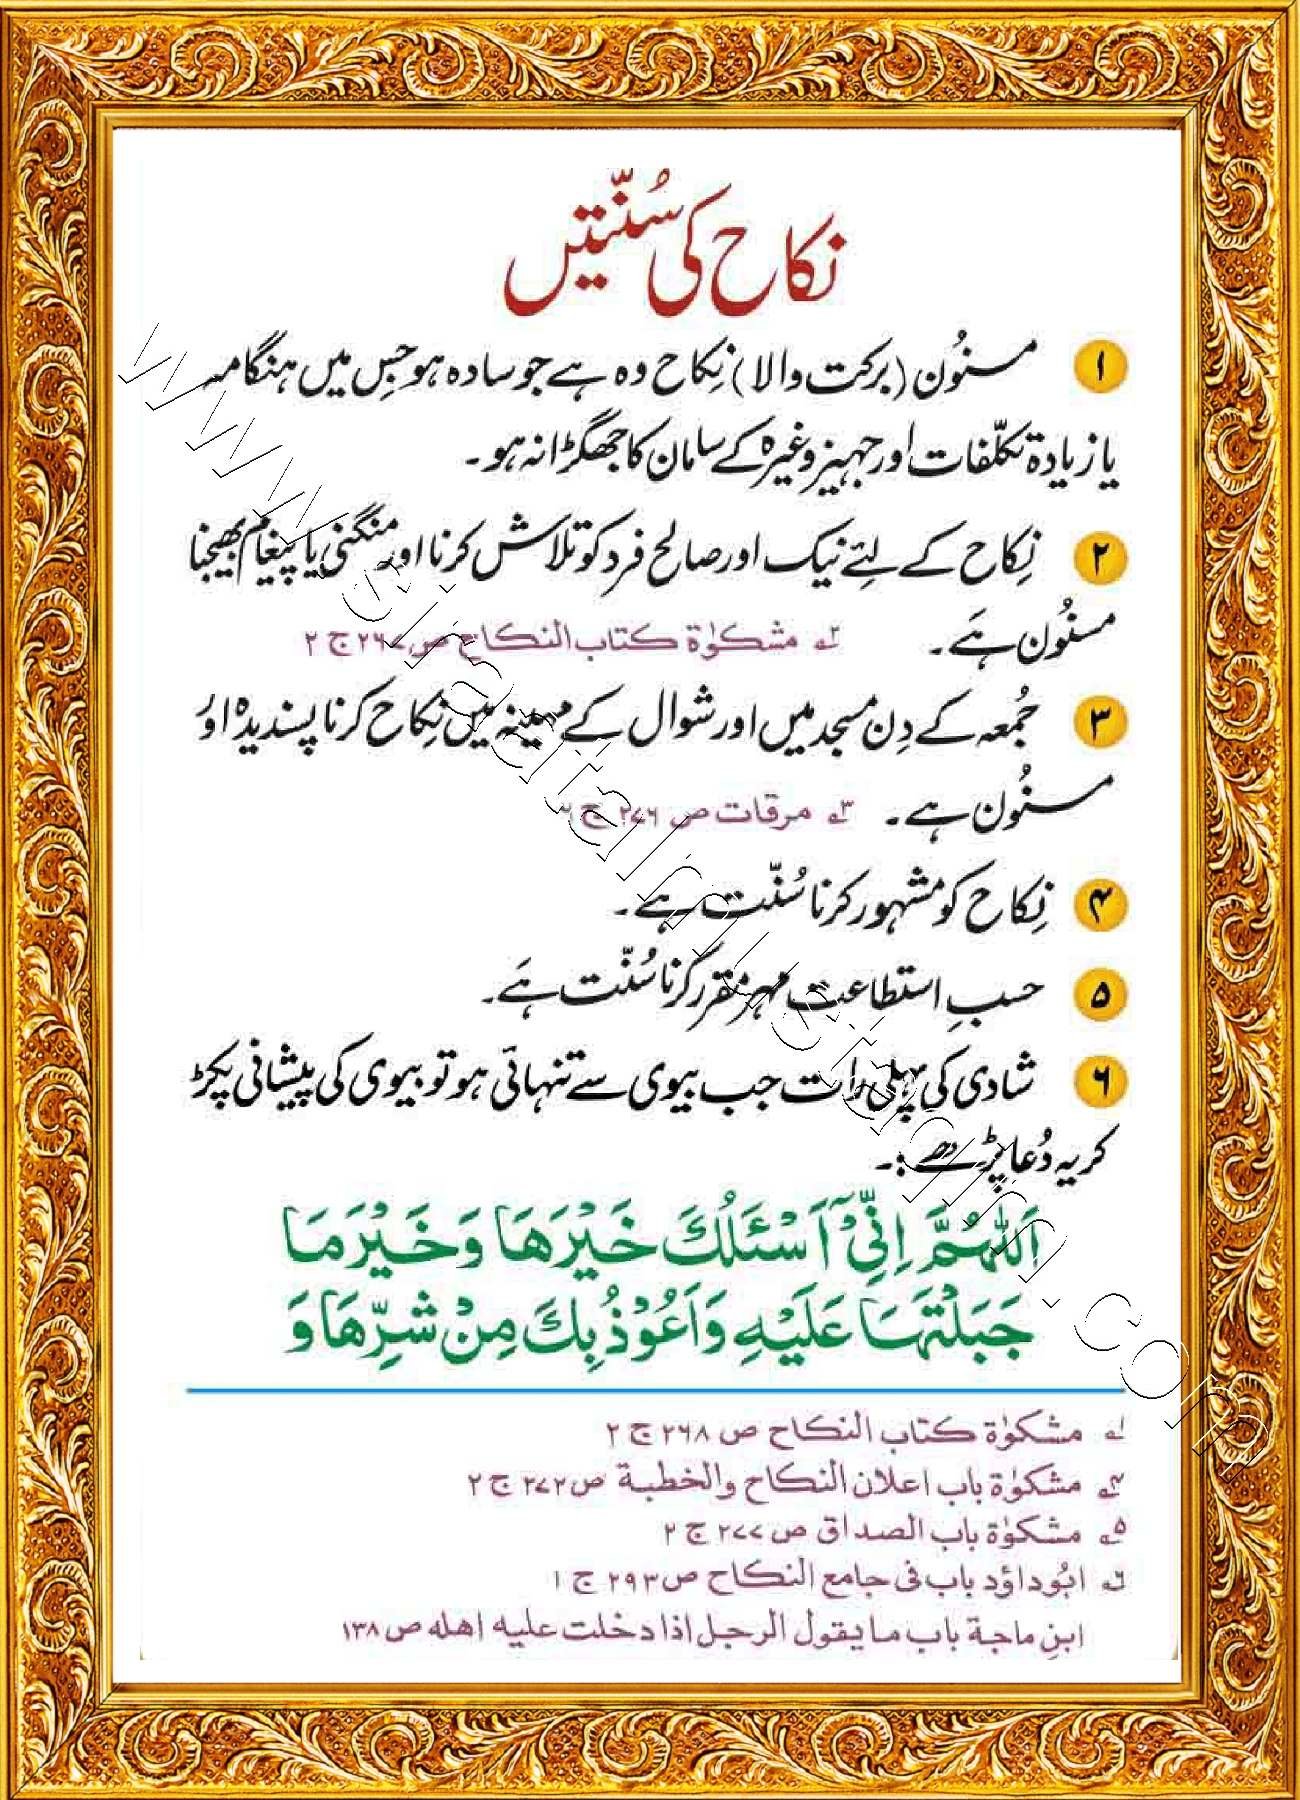 نکاح کی سُنّتیں
۱ مسنُون (برکت والا) نِکاح وہ ہے جو سادہ ہو جس میں ہنگامہ
یا زیادۃ تکلّفات اور جہیز وغیرہ کے سامان کا جھگڑا نہ ہو۔
۲ نِکاح کے لئے نیک اور صالح فرد کو تلاش کرنا اور منگنی یا پیغام بھیجنا
مسنُون ہَے۔ ۲؎ مشکوٰۃ کتاب النکاح ص ۲۶۷ ج ۲
۳ جُمعہ کے دِن مسجد میں اور شوال کے مہینہ میں نِکاح کرنا پسندیدہ اوُ
مسنُون ہے۔ ۳؎ مرقات ص ۲۷۶ ج
۴ نِکاح کو مشہور کرنا سُنّت ہے۔
۵ حسبِ استطاعت مہر مقرر کرنا سُنّت ہَے۔
۶ شادی کی پہلی رات جب بیوی سے تنہائی ہو تو بیوی کی پیشانی پکڑ
کر یہ دُعا پڑھے :۔
اَللّٰهُمَّ اِنِّىْٓ اَسْئَلُكَ خَيْرَهَا وَخَيْرَ مَا
جَبَلْتَهَا عَلَيْهِ وَاَعُوْذُ بِكَ مِنْ شَرِّهَا وَ
۱؎ مشکوٰۃ کتاب النکاح ص ۲۶۸ ج ۲
۴؎ مشکوٰۃ باب اعلان النکاح والخطبة ص ۲۷۲ ج ۲
۵؎ مشکوٰۃ باب الصداق ص ۲۷۷ ج ۲
۶؎ ابُوداؤد باب فی جامع النکاح ص ۲۹۳ ج ۱
ابنِ ماجة باب ما یقول الرجل اذا دخلت علیه اهله ص ۱۳۸